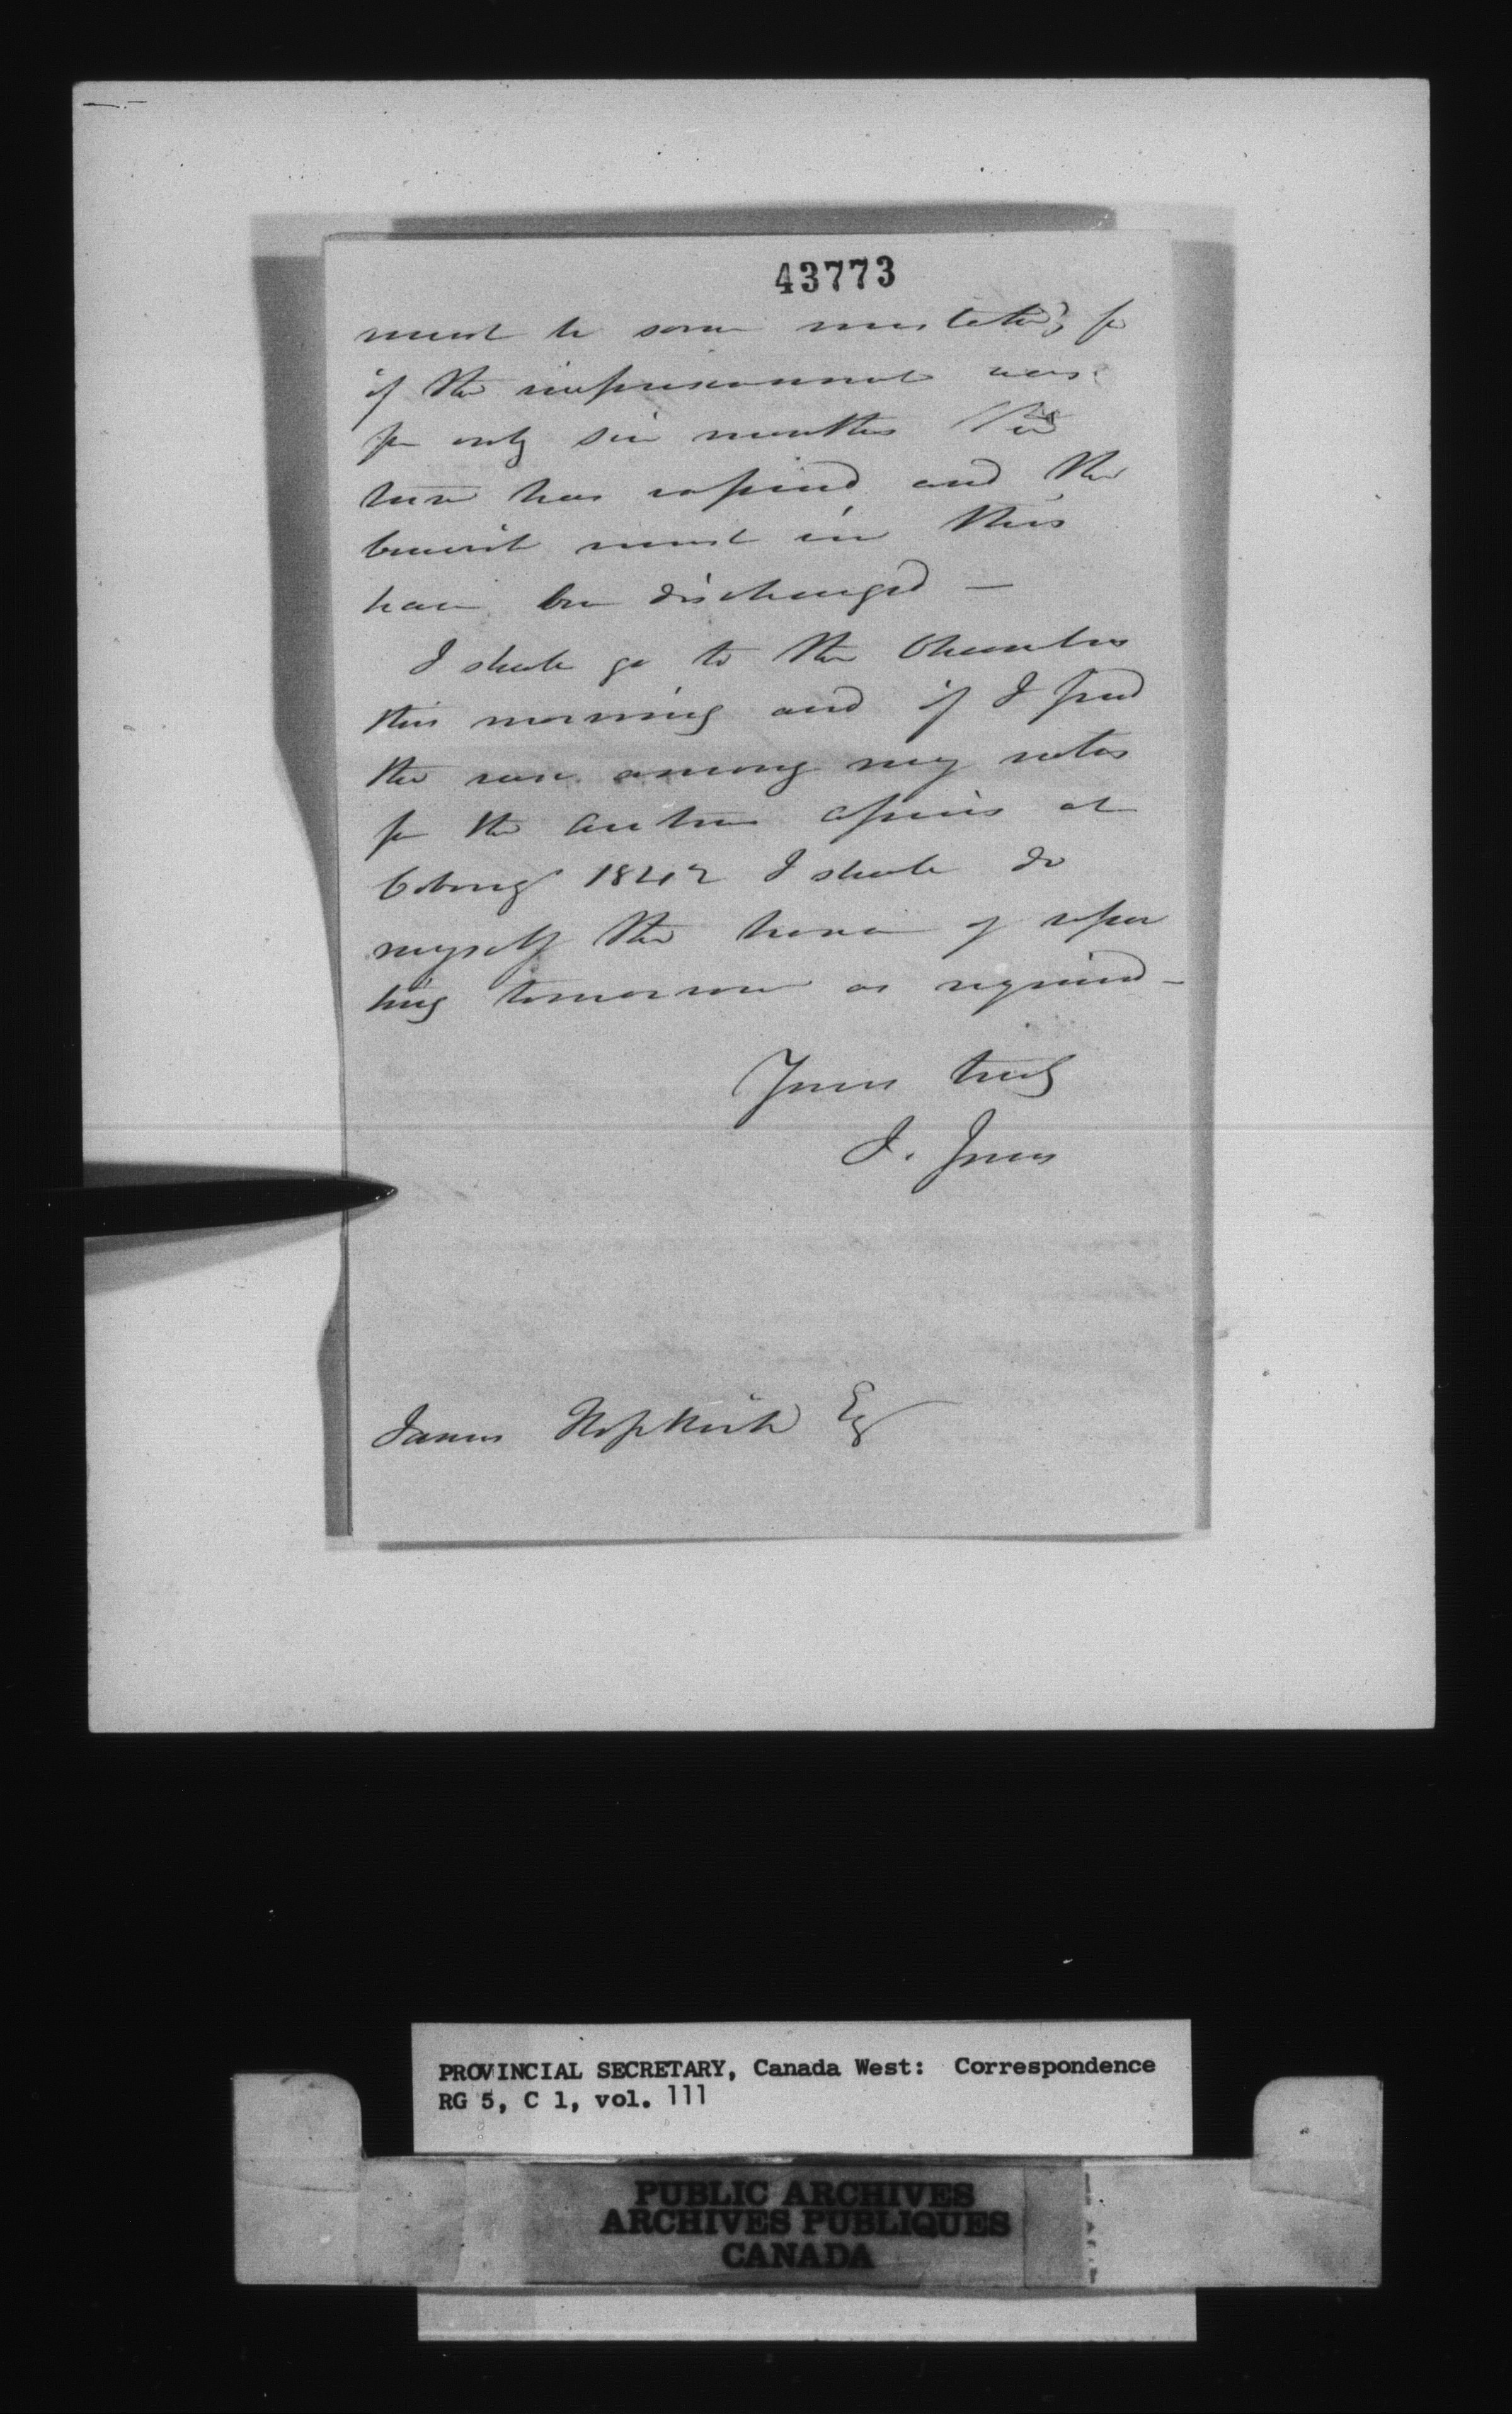 43773
must be some mistake, for
if the imprisonment was
for only six months the
time has expired and the
convict must in this
have been discharged —
I shall go to the Chambers
this morning and if I find
the case among my notes
for the autumn assizes at
Cobourg 1842 I shall do
myself the honor of repor
ting tomorrow as required —
Yours truly
J. Jones
James Hopkirk Esq
PROVINCIAL SECRETARY, Canada West: Correspondence
RG 5, C 1, vol. 111
PUBLIC ARCHIVES
ARCHIVES PUBLIQUES
CANADA